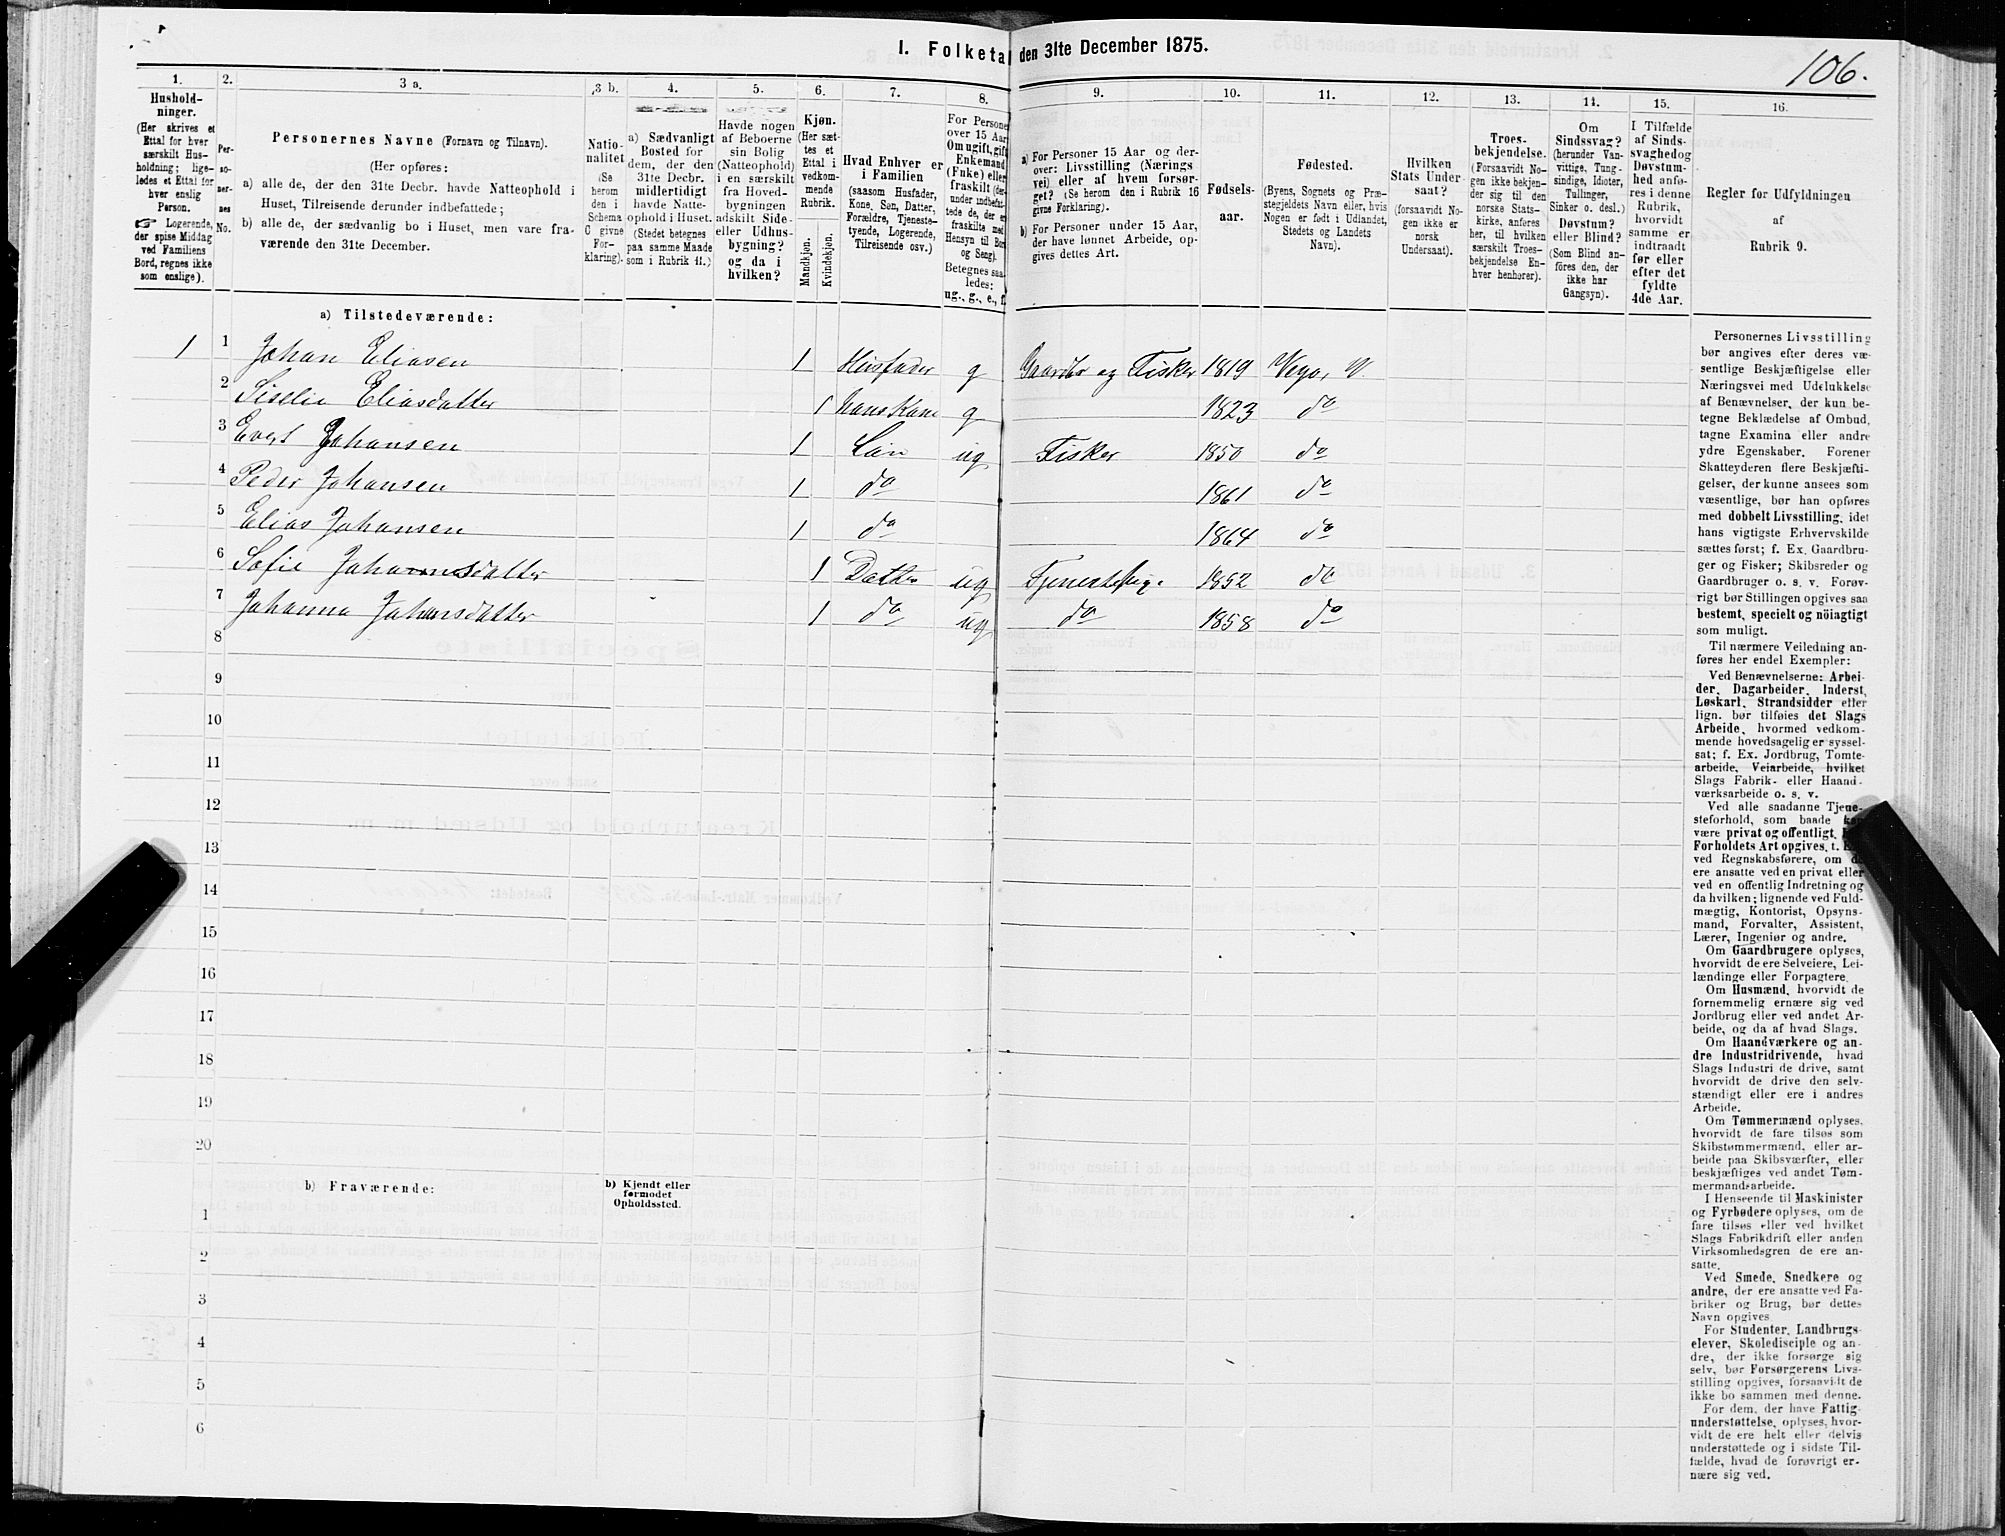 I. Folketal den 31te December 1875.
106.
1.
Hushold-
ninger.
(Her skrives et
Ettal for hver
særskilt Hus-
holdning; lige-
ledes et Ettal for
hver enslig
Person.
☞ Logerende,
der spise Middag
ved Familiens
Bord, regnes ikke
som enslige).
2.
Per-
so-
ner-
nes
No.
3 a.
Personernes Navne (Fornavn og Tilnavn).
(Her opføres:
a) alle de, der den 31te Decbr. havde Natteophold i
Huset, Tilreisende derunder indbefattede;
b) alle de, der sædvanlig bo i Huset, men vare fra-
værende den 31te December.
3 b.
Natio-
nalitet
(Se
herom
den i
Schema
C givne
For-
klaring).
4.
a) Sædvanligt
Bosted for
dem, der den
31te Decbr.
midlertidigt
havde Natte-
ophold i Huset.
(Stedet betegnes
paa samme Maade
som i Rubrik 11.)
5.
Havde nogen
af Beboerne
sin Bolig
(Natteophold)
i en særskilt
fra Hoved-
bygningen
adskilt Side-
eller Udhus-
bygning?
og da i
hvilken?
6.
Kjøn.
(Her sæt-
tes et
Ettal i
vedkom-
mende
Rubrik.
Mandkjøn.
Kvindekjøn.
7.
Hvad Enhver er
i Familien
(saasom Husfader,
Kone, Søn, Datter,
Forældre, Tjeneste-
tyende, Logerende,
Tilreisende osv.).
8.
For Personer
over 15 Aar:
Om ugift, gift,
Enkemand
(Enke) eller
fraskilt (der-
under indbefat-
tede de, der er
fraskilte med
Hensyn til Bord
og Seng).
Betegnes saa-
ledes:
ug., g., e., f.
9.
a) For Personer 15 Aar og der-
over: Livsstilling (Nærings-
vei) eller af hvem forsør-
get? (Se herom den i Rubrik 16
givne Forklaring).
b) For Personer under 15 Aar,
der have lønnet Arbeide, op-
gives dettes Art.
10.
Fødsels-
aar.
11.
Fødested.
(Byens, Sognets og Præ-
stegjeldets Navn eller, hvis
Nogen er født i Udlandet,
Stedets og Landets
Navn).
12.
Hvilken
Stats Under-
saat?
(forsaavidt No-
gen ikke er
norsk
Undersaat).
13.
Troes-
bekjendelse.
(Forsaavidt No-
gen ikke bekjen-
der sig til den
norske Stats-
kirke, anføres
her, til hvilken
særskilt Troes-
bekjendelse En-
hver henhører).
14.
Om
Sindssvag?
(herunder Van-
vittige, Tung-
sindige, Idioter,
Tullinger,
Sinker o. desl.)
Døvstum?
eller Blind?
(Som Blind an-
føres den, der
ikke har
Gangsyn).
15.
I Tilfælde
af Sinds-
svaghed og
Døvstum-
hed anfø-
res i denne
Rubrik,
hvorvidt
samme er
indtraadt
før eller
efter det
fyldte
4de Aar.
16.
Regler for Udfyldningen
af
Rubrik 9.
a) Tilstedeværende:
1 1 Johan Eliasen 1 Husfader g Gaardbr og Fisker 1819 Vega, V.
2 Siselie Eliasdatter 1 hans Kone g 1823 do
3 Evert Johansen 1 Søn ug Fisker 1850 do
4 Peder Johansen 1 do 1861 do
5 Elias Johansen 1 do 1864 do
6 Sofie Johannsdatter 1 Datter ug Tjenestepige 1852 do
7 Johanna Johansdatter 1 do ug do 1858 do
8
9
10
11
12
13
14
15
16
17
18
19
20
b) Fraværende:
b) Kjendt eller
formodet
Opholdssted.
1
2
3
4
5
6
Personernes Livsstilling
bør angives efter deres væ-
sentlige Beskjæftigelse eller
Næringsvei med Udelukkelse
af Benævnelser, der kun be-
tegne Beklædelse af Ombud,
tagne Examina eller andre
ydre Egenskaber. Forener
Skatteyderen flere Beskjæfti-
gelser, der kunne ansees som
væsentlige, bør han opføres
med dobbelt Livsstilling, idet
hans vigtigste Erhvervskilde
sættes først; f. Ex. Gaardbru-
ger og Fisker; Skibsreder og
Gaardbruger o. s. v. Forøv-
rigt bør Stillingen opgives saa
bestemt, specielt og nöiagtigt
som muligt.
Til nærmere Veiledning an-
føres her endel Exempler:
Ved Benævnelserne: Arbei-
der, Dagarbeider, Inderst,
Løskarl, Strandsidder eller
lign. bør tilføies det Slags
Arbeide, hvormed vedkom-
mende hovedsagelig er syssel-
sat; f. Ex. Jordbrug, Tomte-
arbeide, Veiarbeide, hvilket
Slags Fabrik- eller Haand-
værksarbeide o. s. v.
Ved alle saadanne Tjene-
steforhold, som baade
være privat og offentligt,
Forholdets Art opgives, t.
ved Regnskabsførere, om
ere ansatte ved en privat eller
ved en offentlig Indretning og
da hvilken; lignende ved Fuld-
mægtig, Kontorist, Opsyns-
mand, Forvalter, Assistent,
Lærer, Ingeniør og andre.
Om Gaardbrugere oplyses,
hvorvidt de ere Selveiere, Lei-
lændinge eller Forpagtere.
Om Husmænd, hvorvidt de
fornemmelig ernære sig ved
Jordbrug eller ved andet Ar-
beide, og da af hvad Slags.
Om Haandværkere og an-
dre Industridrivende, hvad
Slags Industri de drive, samt
hvorvidt de drive den selv-
stændigt eller ere i andres
Arbeide.
Om Tømmermænd oplyses,
hvorvidt de fare tilsøs som
Skibstømmermænd, eller ar-
beide paa Skibsværfter, eller
beskjæftiges ved andet Tøm-
mermandsarbeide.
I Henseende til Maskinister
og Fyrbødere oplyses, om de
fare tilsøs eller ved hvilket
Slags Fabrikdrift eller anden
Virksomhedsgren de ere an-
satte.
Ved Smede, Snedkere og
andre, der ere ansatte ved Fa-
briker og Brug, bør dettes
Navn opgives
For Studenter, Landbrugs-
elever, Skoledisciple og an-
dre, der ikke forsørge sig
selv, bør Forsørgerens Livs-
stilling opgives, forsaavidt de
ikke bo sammen med denne.
For dem, der have Fattig-
understøttelse, oplyses, hvor-
vidt de ere helt eller delvis
understøttede og i sidste Til-
fælde, hvad de forøvrigt er-
nære sig ved.